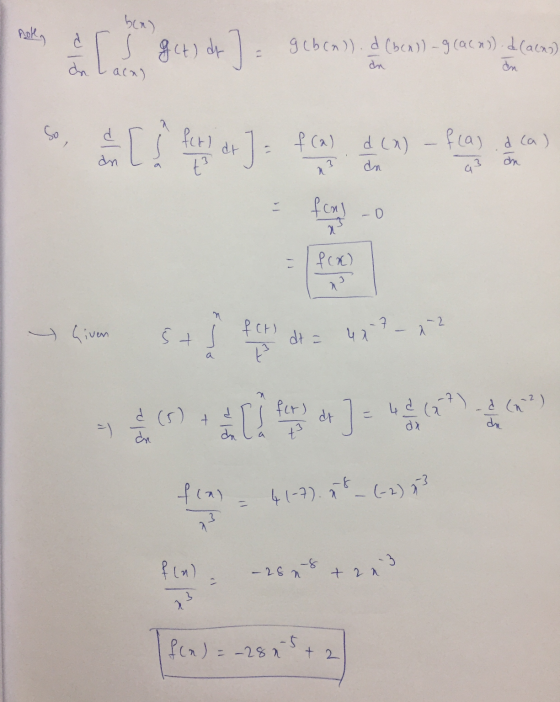 d/dx [ ∫_{a(x)}^{b(x)} g(t) dt ] = g(b(x)) · d/dx (b(x)) - g(a(x)) · d/dx (a(x))
So, d/dx [ ∫_a^x f(t)/t³ dt ] = f(x)/x³ · d/dx (x) - f(a)/a³ · d/dx (a)
= f(x)/x³ - 0
= f(x)/x³
→ Given 5 + ∫_a^x f(t)/t³ dt = 4x⁻⁷ - x⁻²
⇒ d/dx (5) + d/dx [ ∫_a^x f(t)/t³ dt ] = 4 d/dx (x⁻⁷) - d/dx (x⁻²)
f(x)/x³ = 4(-7) · x⁻⁸ - (-2) x⁻³
f(x)/x³ = -28 x⁻⁸ + 2 x⁻³
f(x) = -28 x⁻⁵ + 2